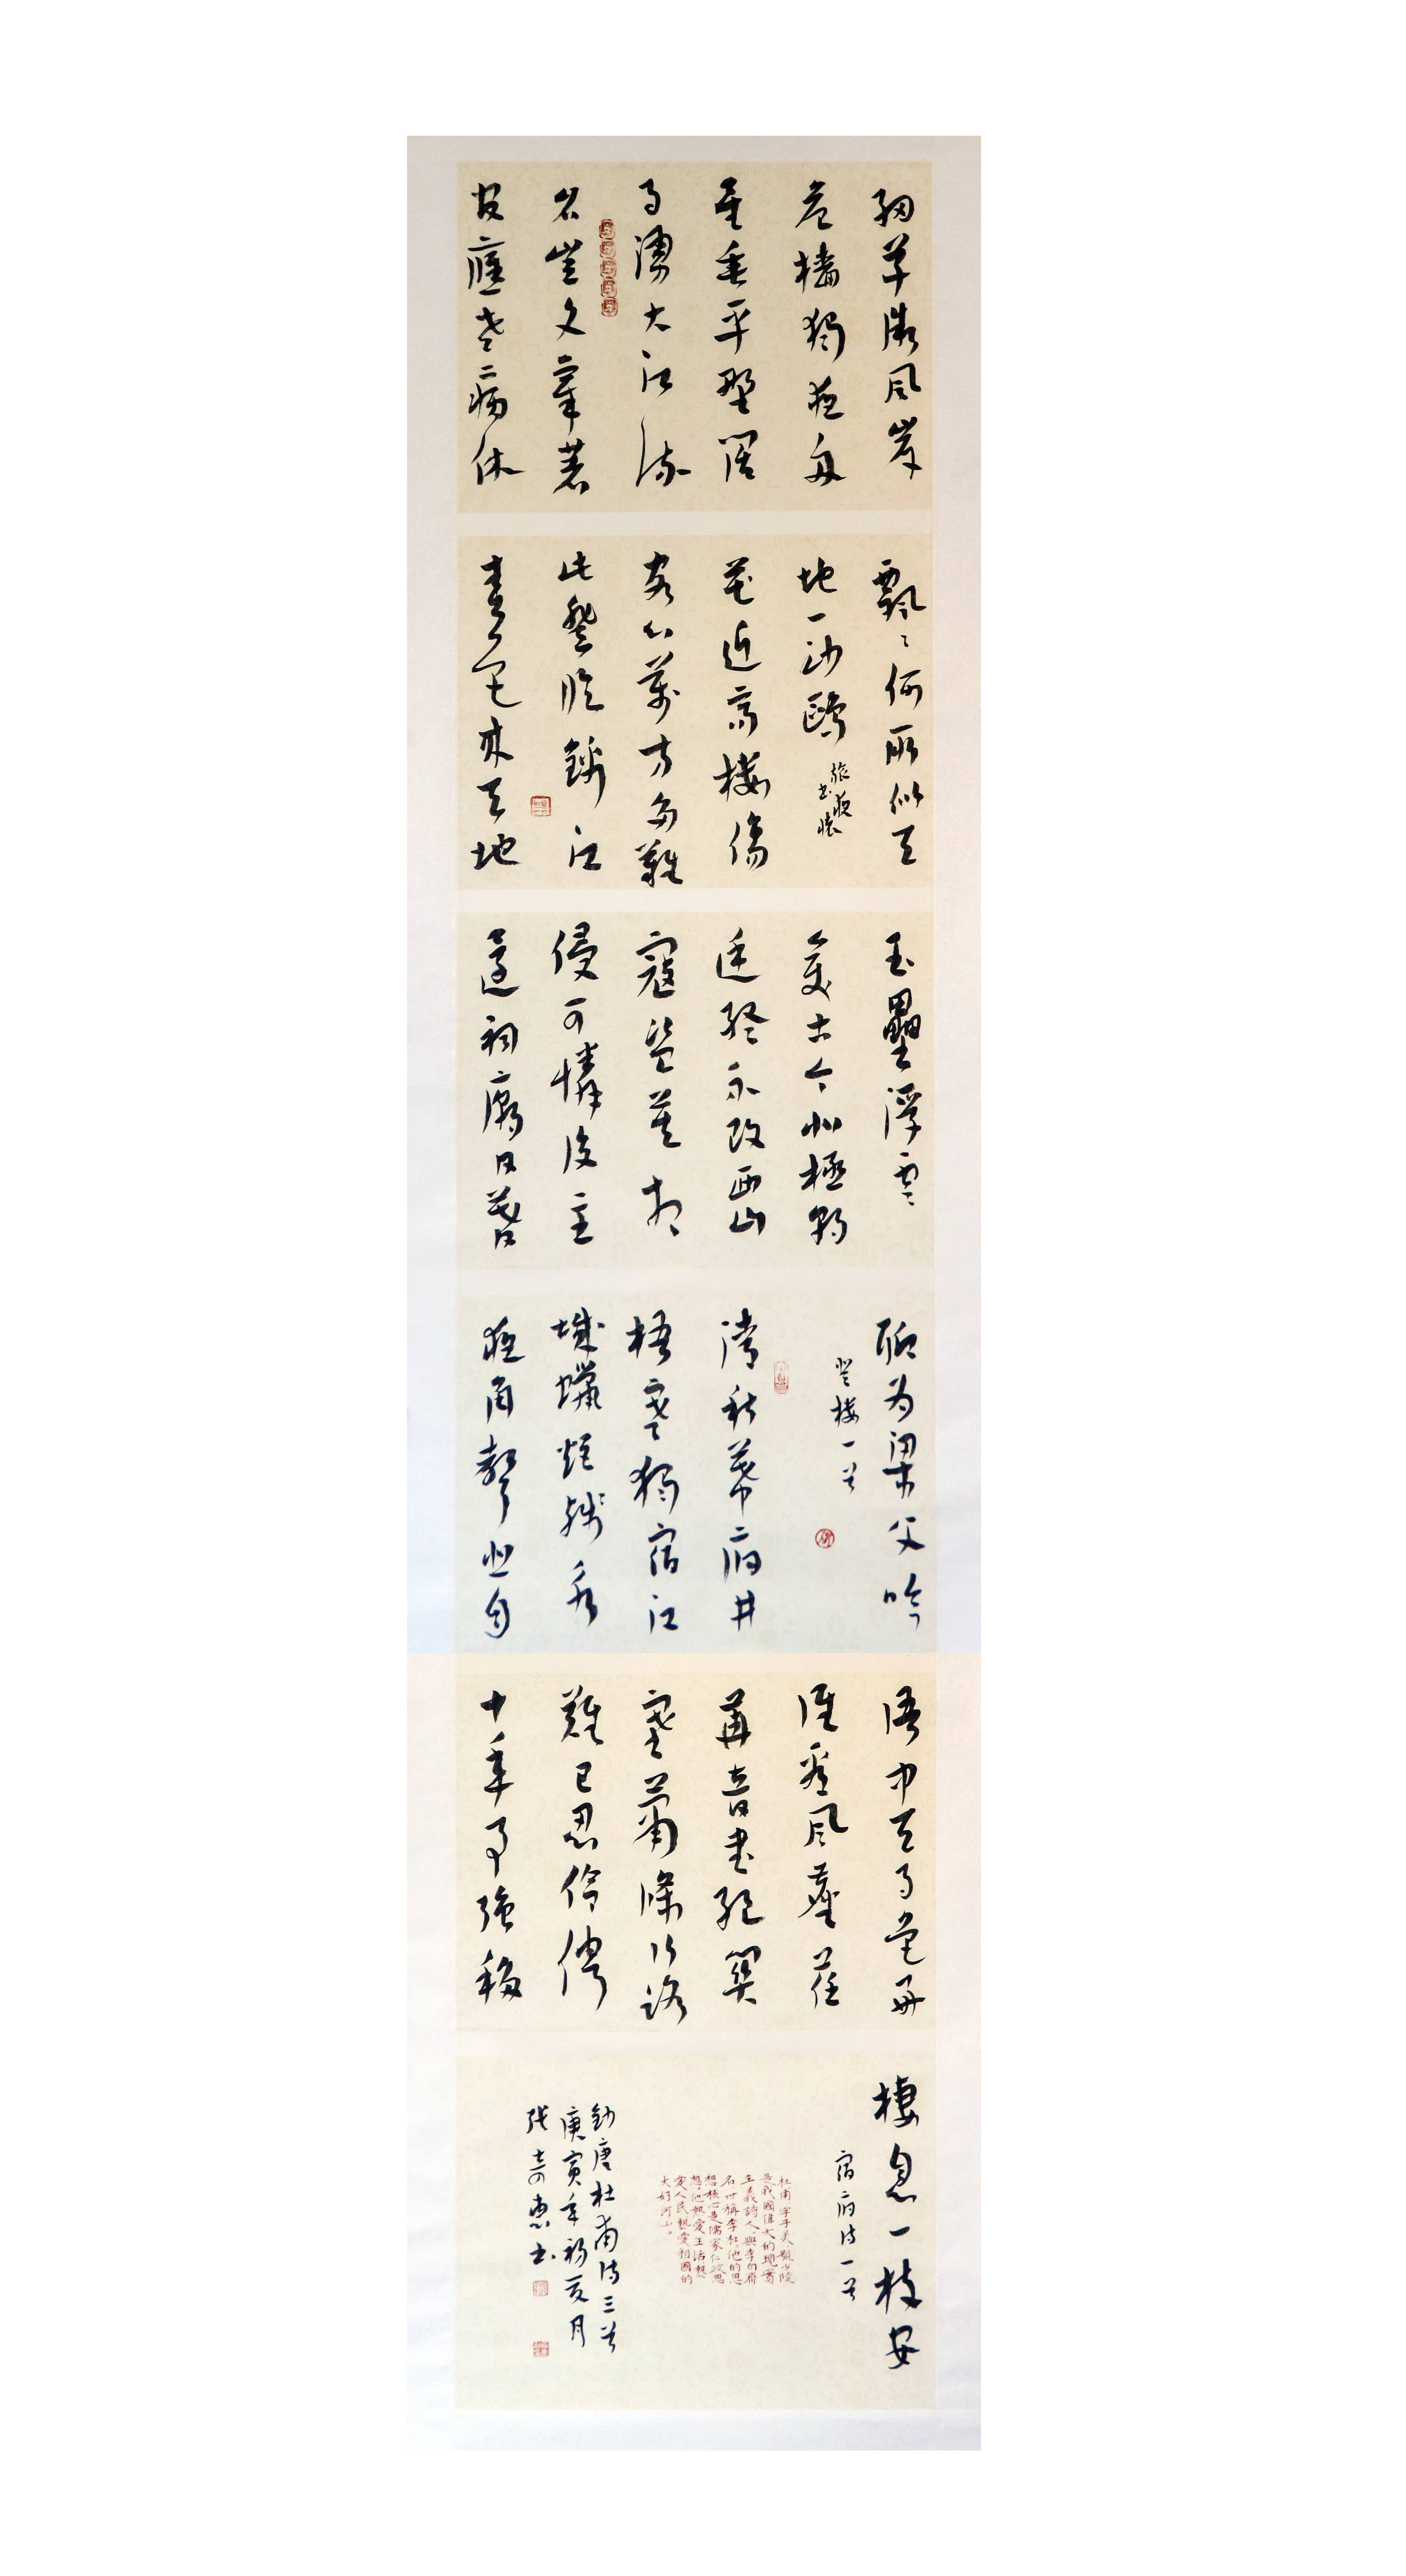 細草微風岸
危檣獨夜舟
星垂平野闊
月湧大江流
名豈文章著
官應老病休
飄々何所似天
地一沙鷗
旅夜
書懷
花近高樓傷
客心萬方多難
此登臨錦江
春色來天地
玉壘浮雲
變古今北極朝
廷終不改西山
寇盜莫相
侵可憐後主
還祠廟日暮
聊為梁父吟
登樓一首
清秋幕府井
梧寒獨宿江
城蠟炬殘永
夜角聲悲自
語中天月色好
誰看風塵荏
苒音書絕關
塞蕭條行路
難已忍伶俜
十年事強移
棲息一枝安
宿府詩一首
杜甫字子美號少陵
是我國偉大的現實
主義詩人與李白齊
名世稱李杜他的思
想核心是儒家仁政思
想他熱愛生活熱
愛人民熱愛祖國的
大好河山。
鈔唐杜甫詩三首
庚寅年初夏月
張奇惠書